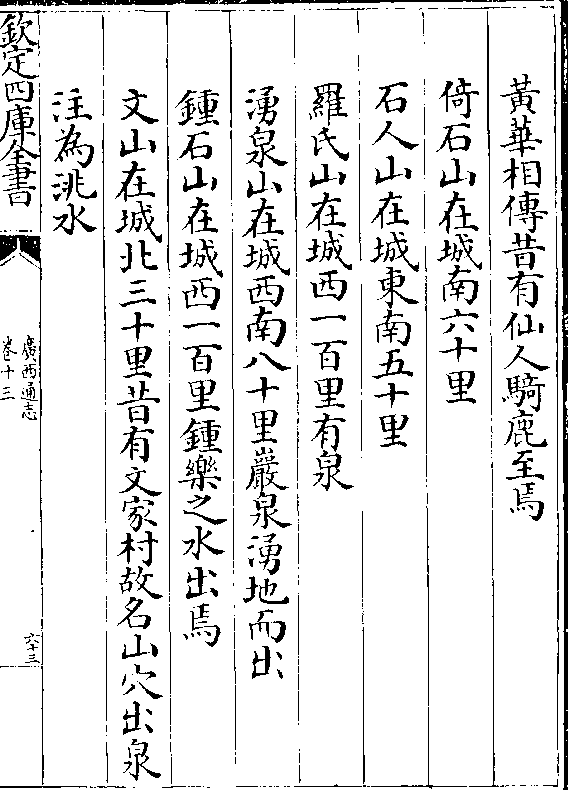 黃華相傳昔有仙人騎鹿至焉
倚石山在城南六十里
石人山在城東南五十里
羅氏山在城西一百里有泉
湧泉山在城西南八十里巖泉湧地而出
鍾石山在城西一百里鍾樂之水出焉
文山在城北三十里昔有文家村故名山穴出泉
注為洮水
欽定四庫全書
廣西通志
卷十三
六十三